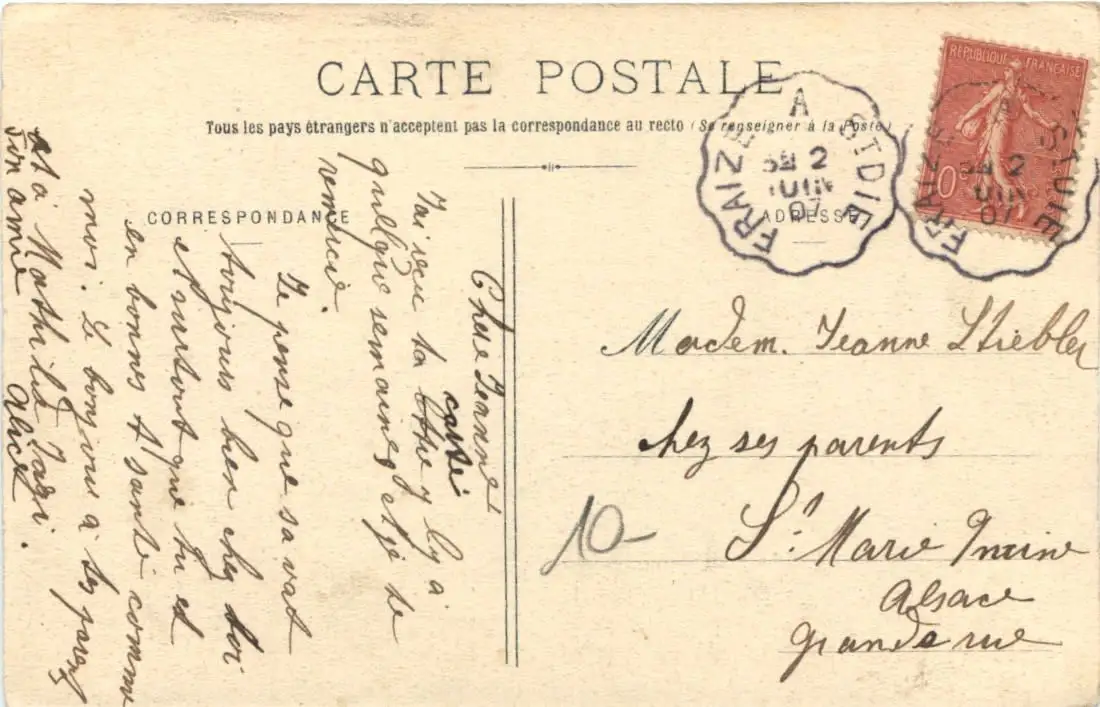 CARTE POSTALE
Tous les pays étrangers n'acceptent pas la correspondance au recto (Se renseigner à la Poste)
CORRESPONDANCE
ADRESSE
REPUBLIQUE FRANÇAISE
10c
FRAIZE A ST DIE
2
JUIN
07
FRAIZE A ST DIE
2
JUIN
07
Chere Jeanne
carte
J'ai reçu ta lettre y ly a
quelque semaines et je te
remercie.
Je pense que sa vat
toujours bien chez toi
et surtout que tu est
en bonnes t'santé comme
moi. Le bonjour a tes parents
et a Mathilde
Ton amie Alice
Madem. Jeanne Stiebler
chez ses parents
St. Marie
Alsace
Grande rue
10-